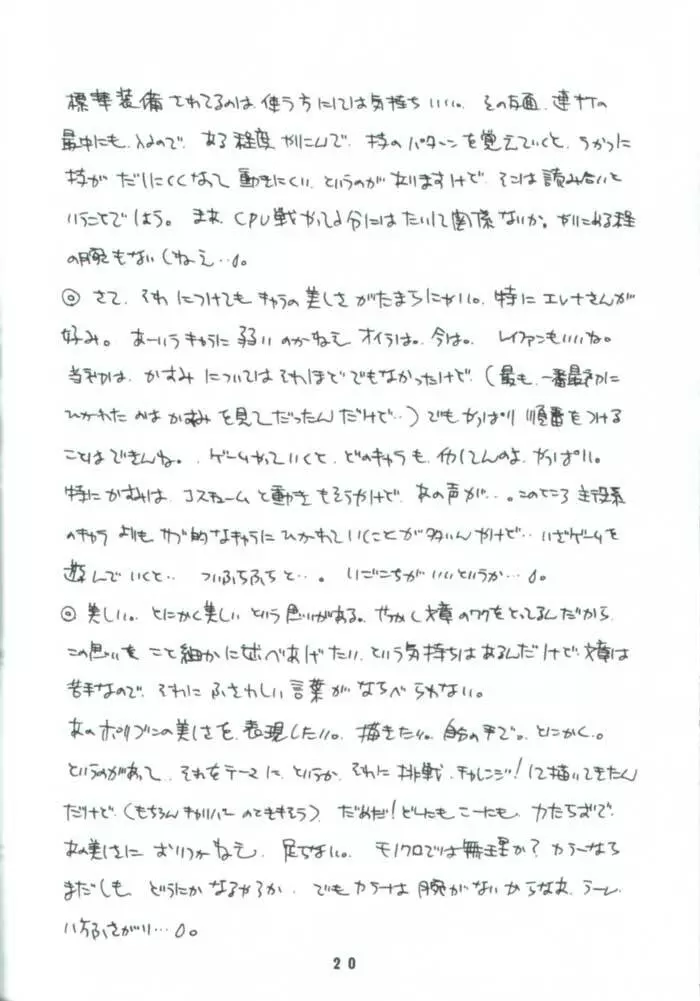 標準装備されてるのは、使う方にしては気持ちいい。その反面、連打の
最中にも入るので、ある程度やりこんで、技のパターンを覚えていくと、うかつに
技がだしにくくなって動きにくい、というのがありますけど、そこは読み合いと
いうことでしょう。まあ、CPU戦やってる分にはたいして関係ないか。やりこめる程
の腕もないしねえ…。
◎ さて、それにつけてもキャラの美しさがたまらにゃい。特にエレナさんが
好み。あーいうキャラに弱いのかねえ オイラは。今は。レイファンもいいね。
当初は、かすみについてはそれほどでもなかったけど、(最も、一番最初に
ひかれたのはかすみを見てだったんだけど…)でもやっぱり順番をつける
ことはできんね。ゲームやっていくと、どのキャラも、やってんのよ、やっぱり。
特にかすみは、コスチュームと動きもそうやけど、あの声が…。このところ主役系
のキャラよりも、サブ的なキャラにひかれていくことが多いんやけど… いざゲームを
遊んでいくと… ついふらふらと…。いごこちがいいというか…。
◎ 美しい。とにかく美しいという思いがある。せっかく文章のワクをとってるんだから、
この思いをこと細かに述べあげたい、という気持ちはあるんだけど、文章は
苦手なので、それにふさわしい言葉がならべられない。
あのポリゴンの美しさを、表現したい。描きたい。自分の手で。とにかく。
というのがあって、それをテーマに、というか、それに挑戦、チャレンジ!して描いてきたん
だけど、(もちろんキャリバーの できそう)、だめだ!どーしたもこーしたも、力たらずで、
あの美しさにおいつかねえ、足らない。モノクロでは無理か?カラーなら
まだしも、どうにかなるやろか、でもカラーは腕がないからなあ、うーし、
八方ふさがり…。
20